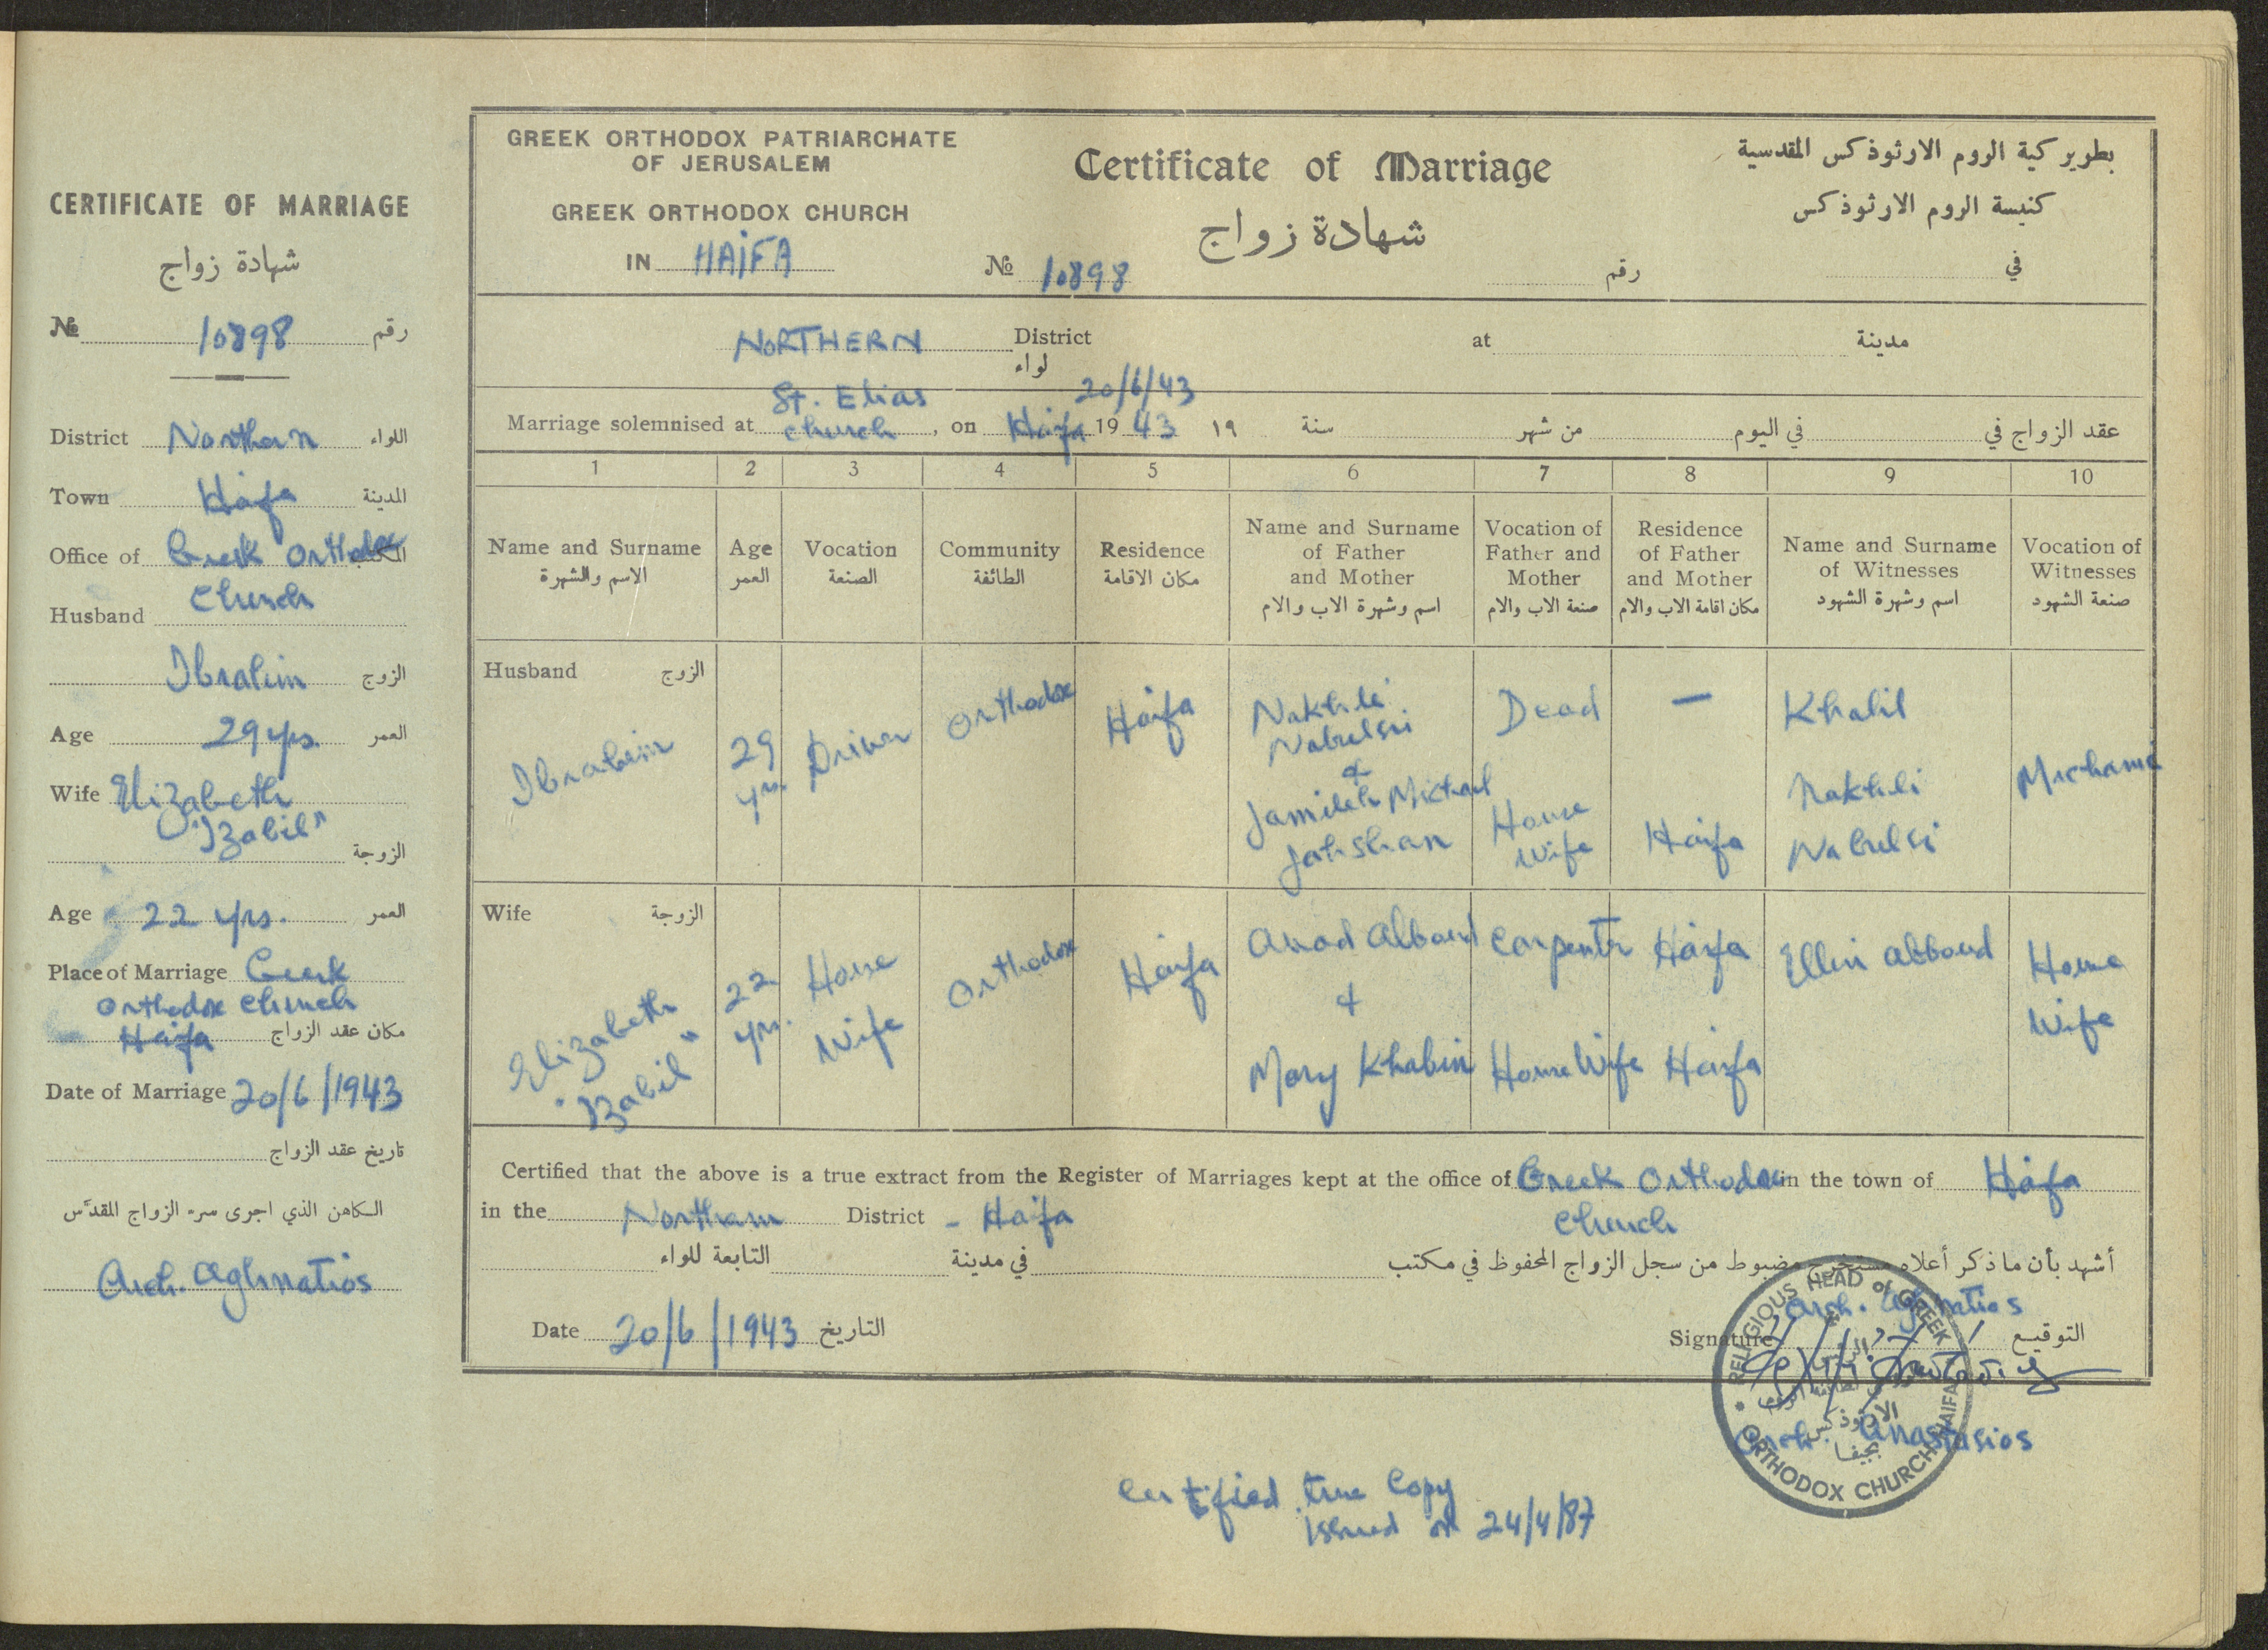 CERTIFICATE OF MARRIAGE
شهادة زواج
№ 10898 رقم
District Northern اللواء
Town Haifa المدينة
Office of Greek Orthodox المكتب
Church
Husband
Ibrahim الزوج
Age 29 yrs. العمر
Wife Elizabeth
"Izabil"
الزوجة
Age 22 yrs. العمر
Place of Marriage Greek
Orthodox Church
Haifa مكان عقد الزواج
Date of Marriage 20/6/1943
تاريخ عقد الزواج
الكاهن الذي اجرى سر الزواج المقدّس
Arch. Aghnatios
GREEK ORTHODOX PATRIARCHATE
OF JERUSALEM
GREEK ORTHODOX CHURCH
IN HAIFA
Certificate of Marriage
شهادة زواج
№ 10898 رقم
بطويركية الروم الارثوذكس المقدسية
كنيسة الروم الارثوذكس
في
NORTHERN District
لواء
at مدينة
St. Elias 20/6/43
Marriage solemnised at Church, on Haifa 1943 ١٩ سنة من شهر في اليوم عقد الزواج في
1 2 3 4 5 6 7 8 9 10
Name and Surname
الاسم والشهرة
Age
العمر
Vocation
الصنعة
Community
الطائفة
Residence
مكان الاقامة
Name and Surname
of Father
and Mother
اسم وشهرة الاب والام
Vocation of
Father and
Mother
صنعة الاب والام
Residence
of Father
and Mother
مكان اقامة الاب والام
Name and Surname
of Witnesses
اسم وشهرة الشهود
Vocation of
Witnesses
صنعة الشهود
Husband الزوج
Ibrahim
29
yrs.
Driver
Orthodox
Haifa
Nakhli
Nabulsi
&
Jamileh Michael
Jahshan
Dead
House
Wife
—
Haifa
Khalil
Nakhli
Nabulsi
Mechanic
Wife الزوجة
Elizabeth
"Izabil"
22
yrs.
House
Wife
Orthodox
Haifa
Abboud
&
Mary
Carpenter
House Wife
Haifa
Haifa
Ellin Abboud
House
Wife
Certified that the above is a true extract from the Register of Marriages kept at the office of Greek Orthodox in the town of Haifa
Church
in the Northern District - Haifa
أشهد بأن ما ذكر أعلاه مستخرج مضبوط من سجل الزواج المحفوظ في مكتب في مدينة التابعة للواء
Arch. Aghnatios
Date 20/6/1943 التاريخ
Signature التوقيع
RELIGIOUS HEAD of GREEK
ORTHODOX CHURCH HAIFA
الارثوذكس
بحيفا
Arch. Anastasios
Certified true Copy
issued on 24/4/87